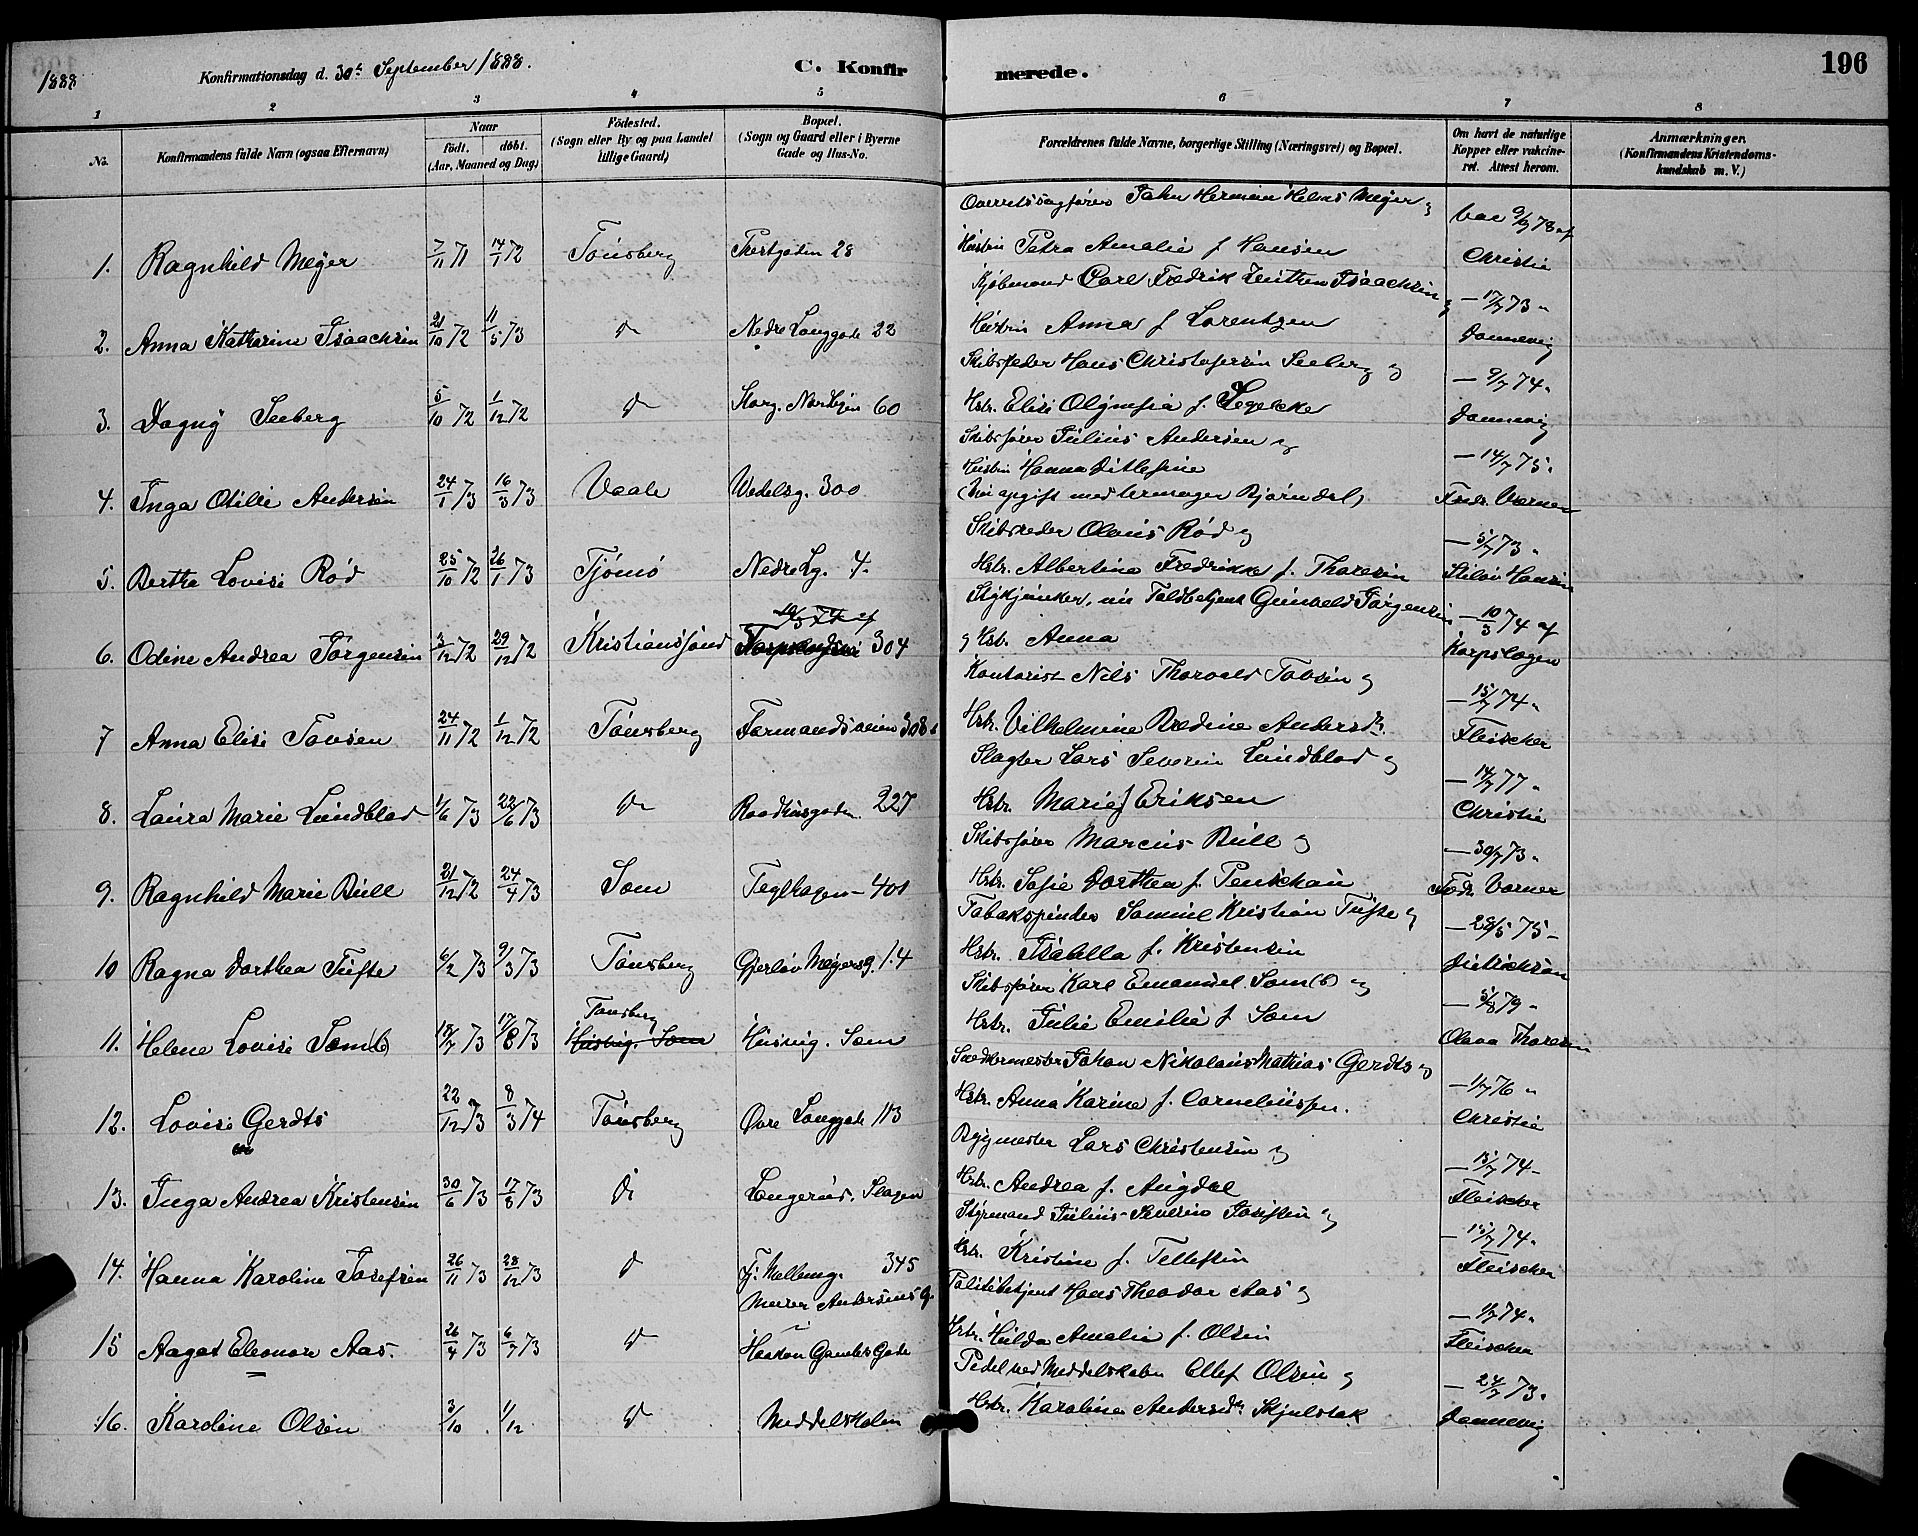 1888
Konfirmationsdag d. 30te September 1888.
C. Konfirmerede.
196
1 2 3 4 5 6 7 8
No.
Konfirmandens fulde Navn (ogsaa Efternavn)
Naar
født. døbt.
(Aar, Maaned og Dag)
Fødested.
(Sogn eller By og paa Landet tillige Gaard)
Bopæl.
(Sogn og Gaard eller i Byerne Gade og Hus-No.
Forældrenes fulde Navne, borgerlige Stilling (Næringsvei) og Bopæl.
Om havt de naturlige Kopper eller vakcineret. Attest herom.
Anmærkninger.
(Konfirmandens Kristendomskundskab m. V.)
Overretssagfører Johan Herman Helms Meyer og
1. Ragnhild Meyer 7/11 71 14/1 72 Tønsberg 28 Hustru Petra Amalie f. Hansen vac 9/9 78 af Christie
Kjøbmand Carl Fredrik Isaachsen og
2. Anna Katharine Isaachsen 21/10 72 11/5 73 do Nedre Langgade 22 Hustru Anna f. Lorentzen — 17/7 73 " Dannevig
Skibsreder Hans Christofersen Seeberg og
3. Dagny Seeberg 5/10 72 1/12 72 do Storg. Nordbyen 60 Hstr. Elise Olympia f. Segelcke — 9/7 74 " Dannevig
Skibsfører Julius Andersen og
4. Inga Otilie Andersen 24/1 73 16/3 73 Vaale Wedelsg. 300 Hustru Hanna Ditlefine — 14/7 75 " Fredr. Værner
(nu gift med Bjørndal)
Skibsreder Olaus Rød og
5. Berthe Lovise Rød 25/10 72 26/1 73 Tjømø Nedre Lg. 4. Hstr. Albertine Fredrikke f. Thoresen — 5/7 73 " Hansen
Stykjunker, nu Toldbetjent Gunvald Jørgensen
6. Odine Andrea Jørgensen 3/12 72 29/12 72 Kristianssund 304 og Hstr. Anna — 10/3 74 af Korpslægen
Kontorist Nils Thorvald Tovsen og
7 Anna Elise Tovsen 24/11 72 1/12 72 Tønsberg Farmandsveien 308 Hstr. Vilhelmine Bredine Andersdr. — 15/7 74 " Fleischer
Slagter Lars Severin Lundblad og
8. Laura Marie Lundblad 1/6 73 22/6 73 do Raadhusgaden 227 Hstr. Marie f Eriksen — 14/7 77 " Christie
Skibsfører Marcus Bull og
9. Ragnhild Marie Bull 21/12 72 24/4 73 Sem Teglhagen — 401 Hstr. Sofie Dorthea f. — 30/7 73 " Fredr. Værner
Tobakspinder Samuel Kristian Tufte og
10 Ragna Dorthea Tufte 6/2 73 9/3 73 Tønsberg Gjerløv Meyersg. 14 Hstr. Isabella f. Kristensen — 28/5 75 — Dietrichson
Skibsfører Karl Emanuel Sem(b) og
11. Helene Lovise Sem(b) 18/7 73 17/8 73 Tønsberg Husvig. Sem Husvig. Sem Hstr. Julie Emilie f Sem — 5/8 79 " Olava Thoresen
Snedkermester Johan Nikolaus Mathias Gerdts og
12. Lovise Gerdts 22/12 73 8/3 74 Tønsberg Øvre Langgade 113 Hstr. Anna Karine f. Corneliussen. — 1/7 76 " Christie
Bygmester Lars Christensen og
13. Inga Andrea Kristensen 30/6 73 17/8 73 do Slagen Hstr. Andrea f. Augdal — 15/7 74 — Fleischer
Styrmand Julius Severin Josefsen og
14. Hanna Karoline Josefsen 26/11 73 28/12 73 do 345 Hstr. Kristine f. Tellefsen — 15/7 74 " Fleischer
Politibetjent Hans Theodor Aas og
15 Aagot Eleonore Aas. 26/4 73 6/7 73 do Haakon Gamles Gade Hstr. Hulda Amalie f. Olsen — 1/7 74 " Fleischer
Pedel ved Middelskolen Ellef Olsen og
16. Karoline Olsen 3/10 1/12 do Middelskolen Hstr. Karoline Andersdtr. — 24/7 73 " Dannevig